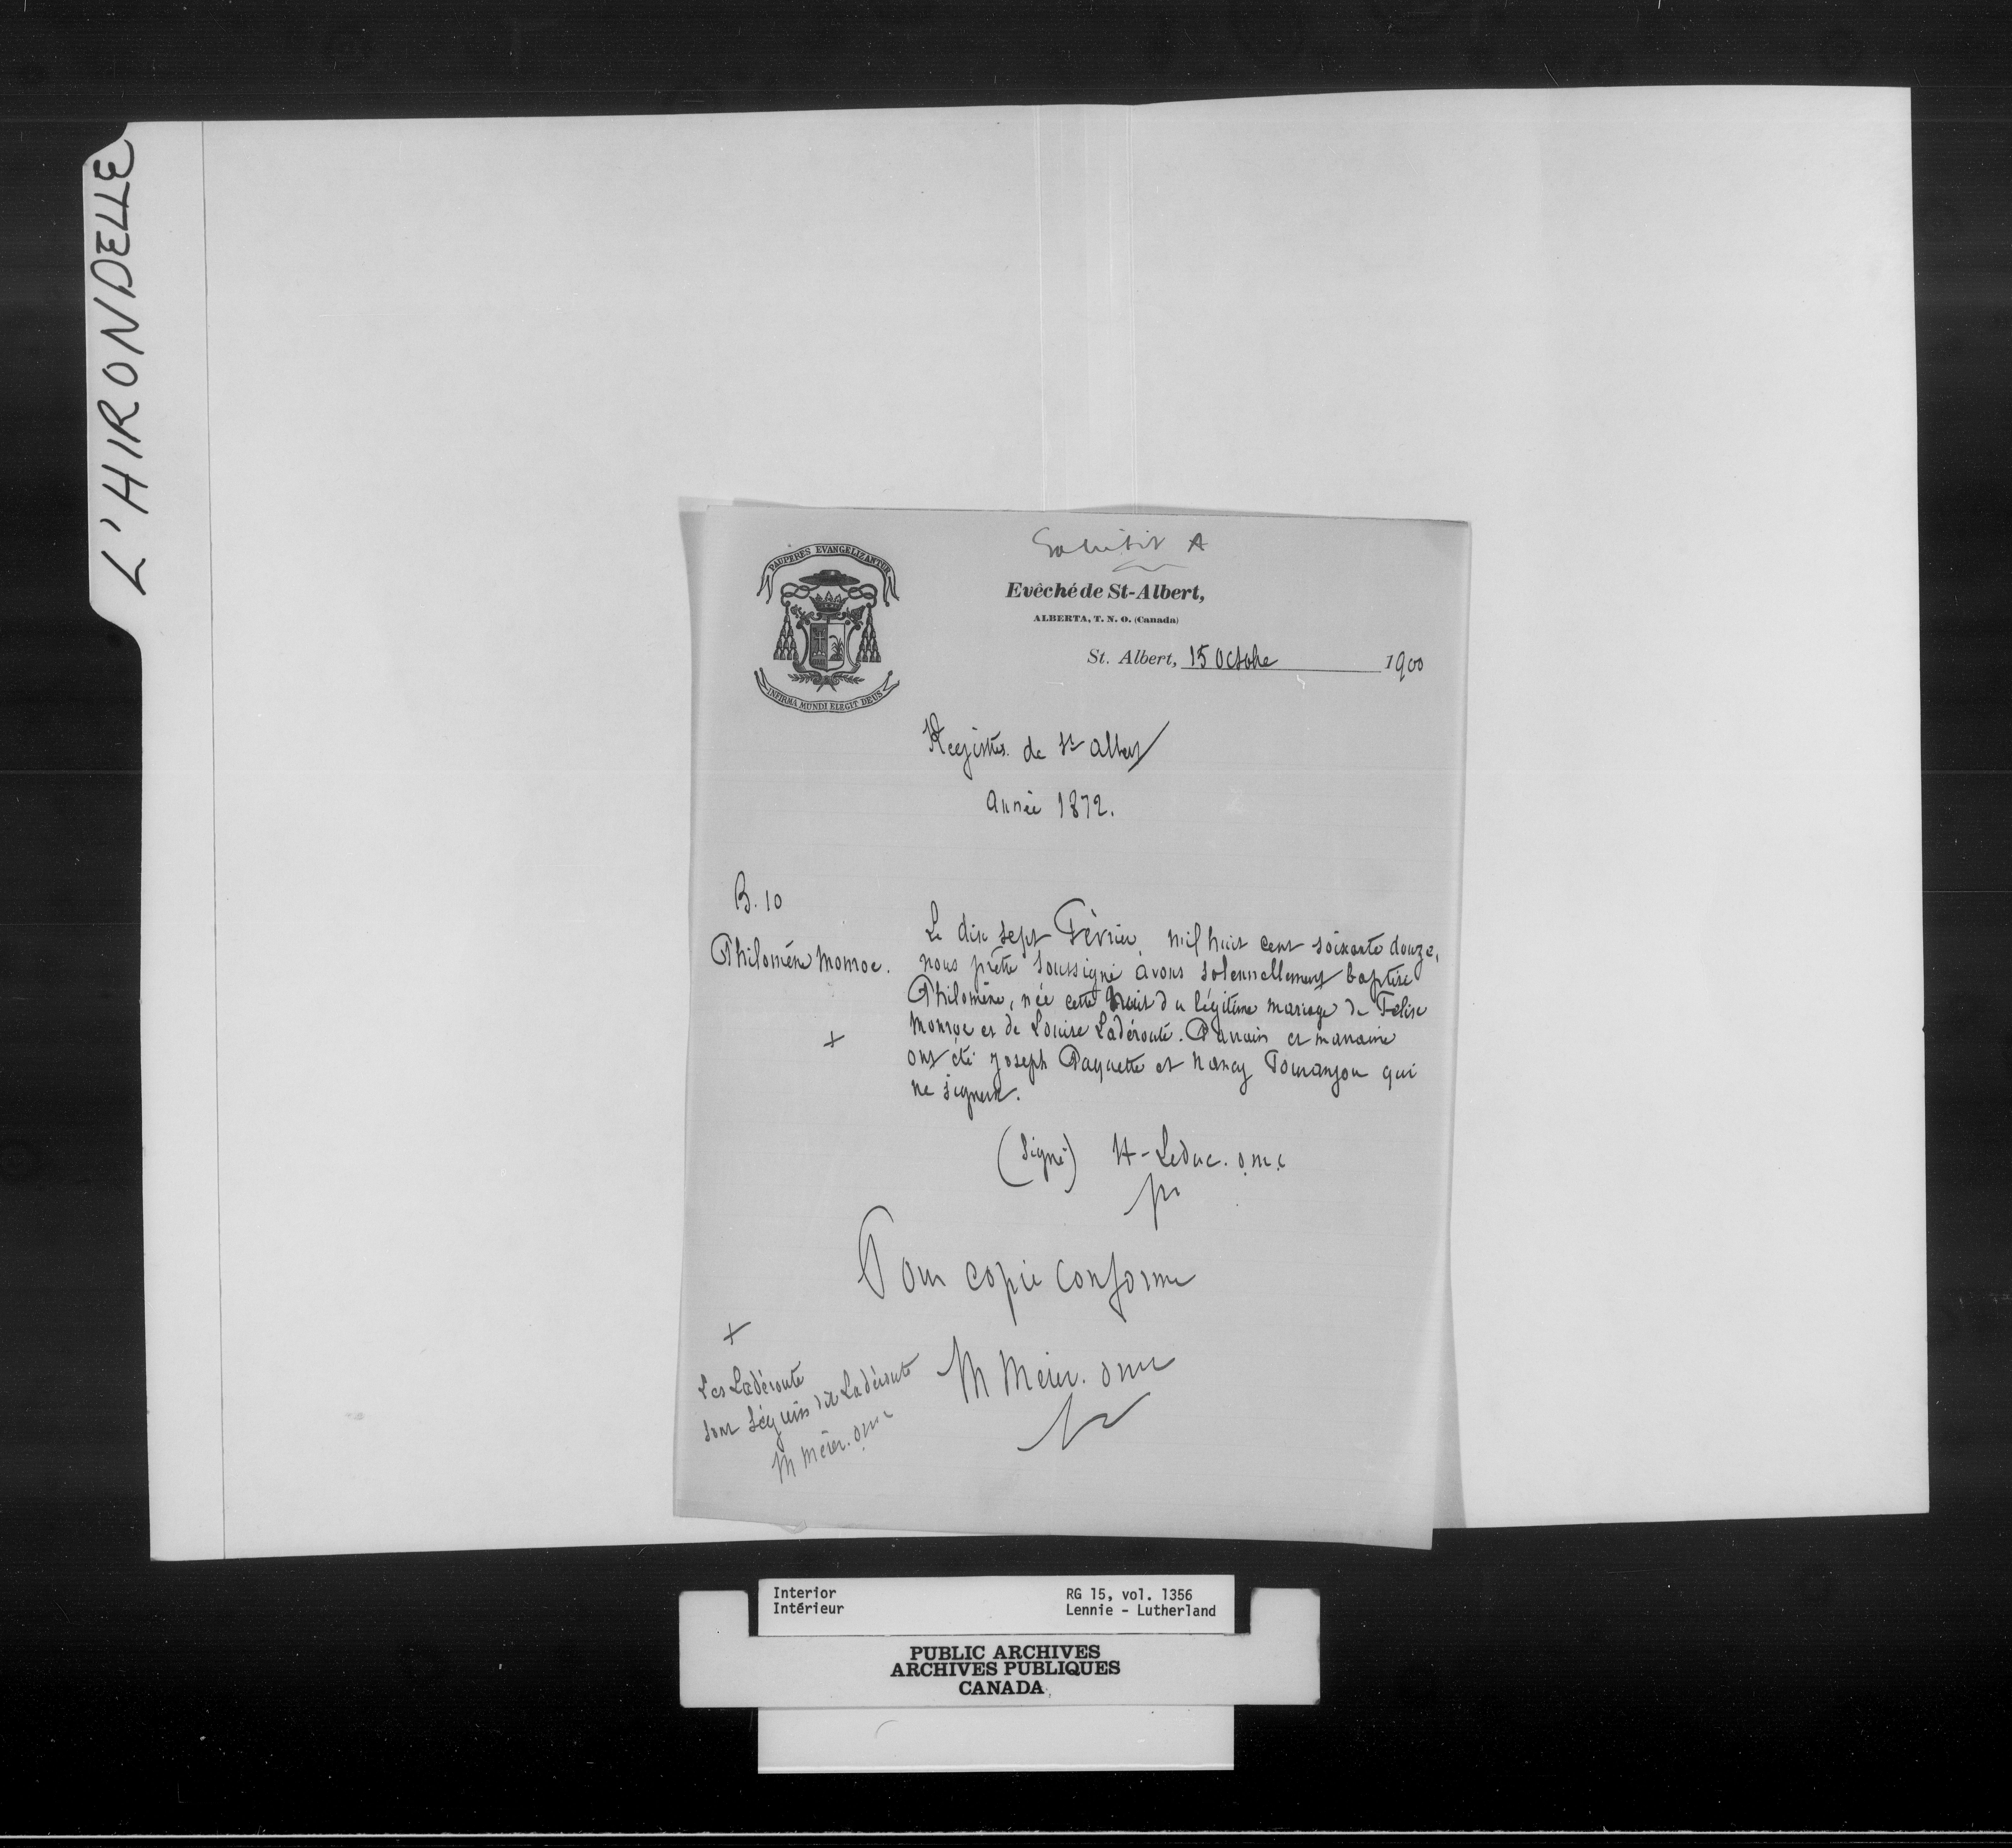 L'HIRONDELLE
Exhibit A
PAUPERES EVANGELIZANTUR
INFIRMA MUNDI ELEGIT DEUS
Evêché de St-Albert,
ALBERTA, T. N. O. (Canada)
St. Albert, 15 Octobre 1900
Registres de St Albert
Année 1872.
B. 10
Philomène Monroe.
Le dix sept Février mil huit cent soixante douze,
nous prêtre soussigné avons solennellement baptisé
Philomène, née cette nuit du légitime mariage de Felise
Monroe et de Louise Ladéroute. Parrain et marraine
+
ont été Joseph Paquette et Nancy Tourangou qui
ne signent.
(Signé) H - Leduc. o.m.i
ptr
Pour copie conforme
+
Les Ladéroute
sont Séguin dit Ladéroute
M Mérer. omi
M Mérer. omi
ptr
Interior
Intérieur
RG 15, vol. 1356
Lennie - Lutherland
PUBLIC ARCHIVES
ARCHIVES PUBLIQUES
CANADA